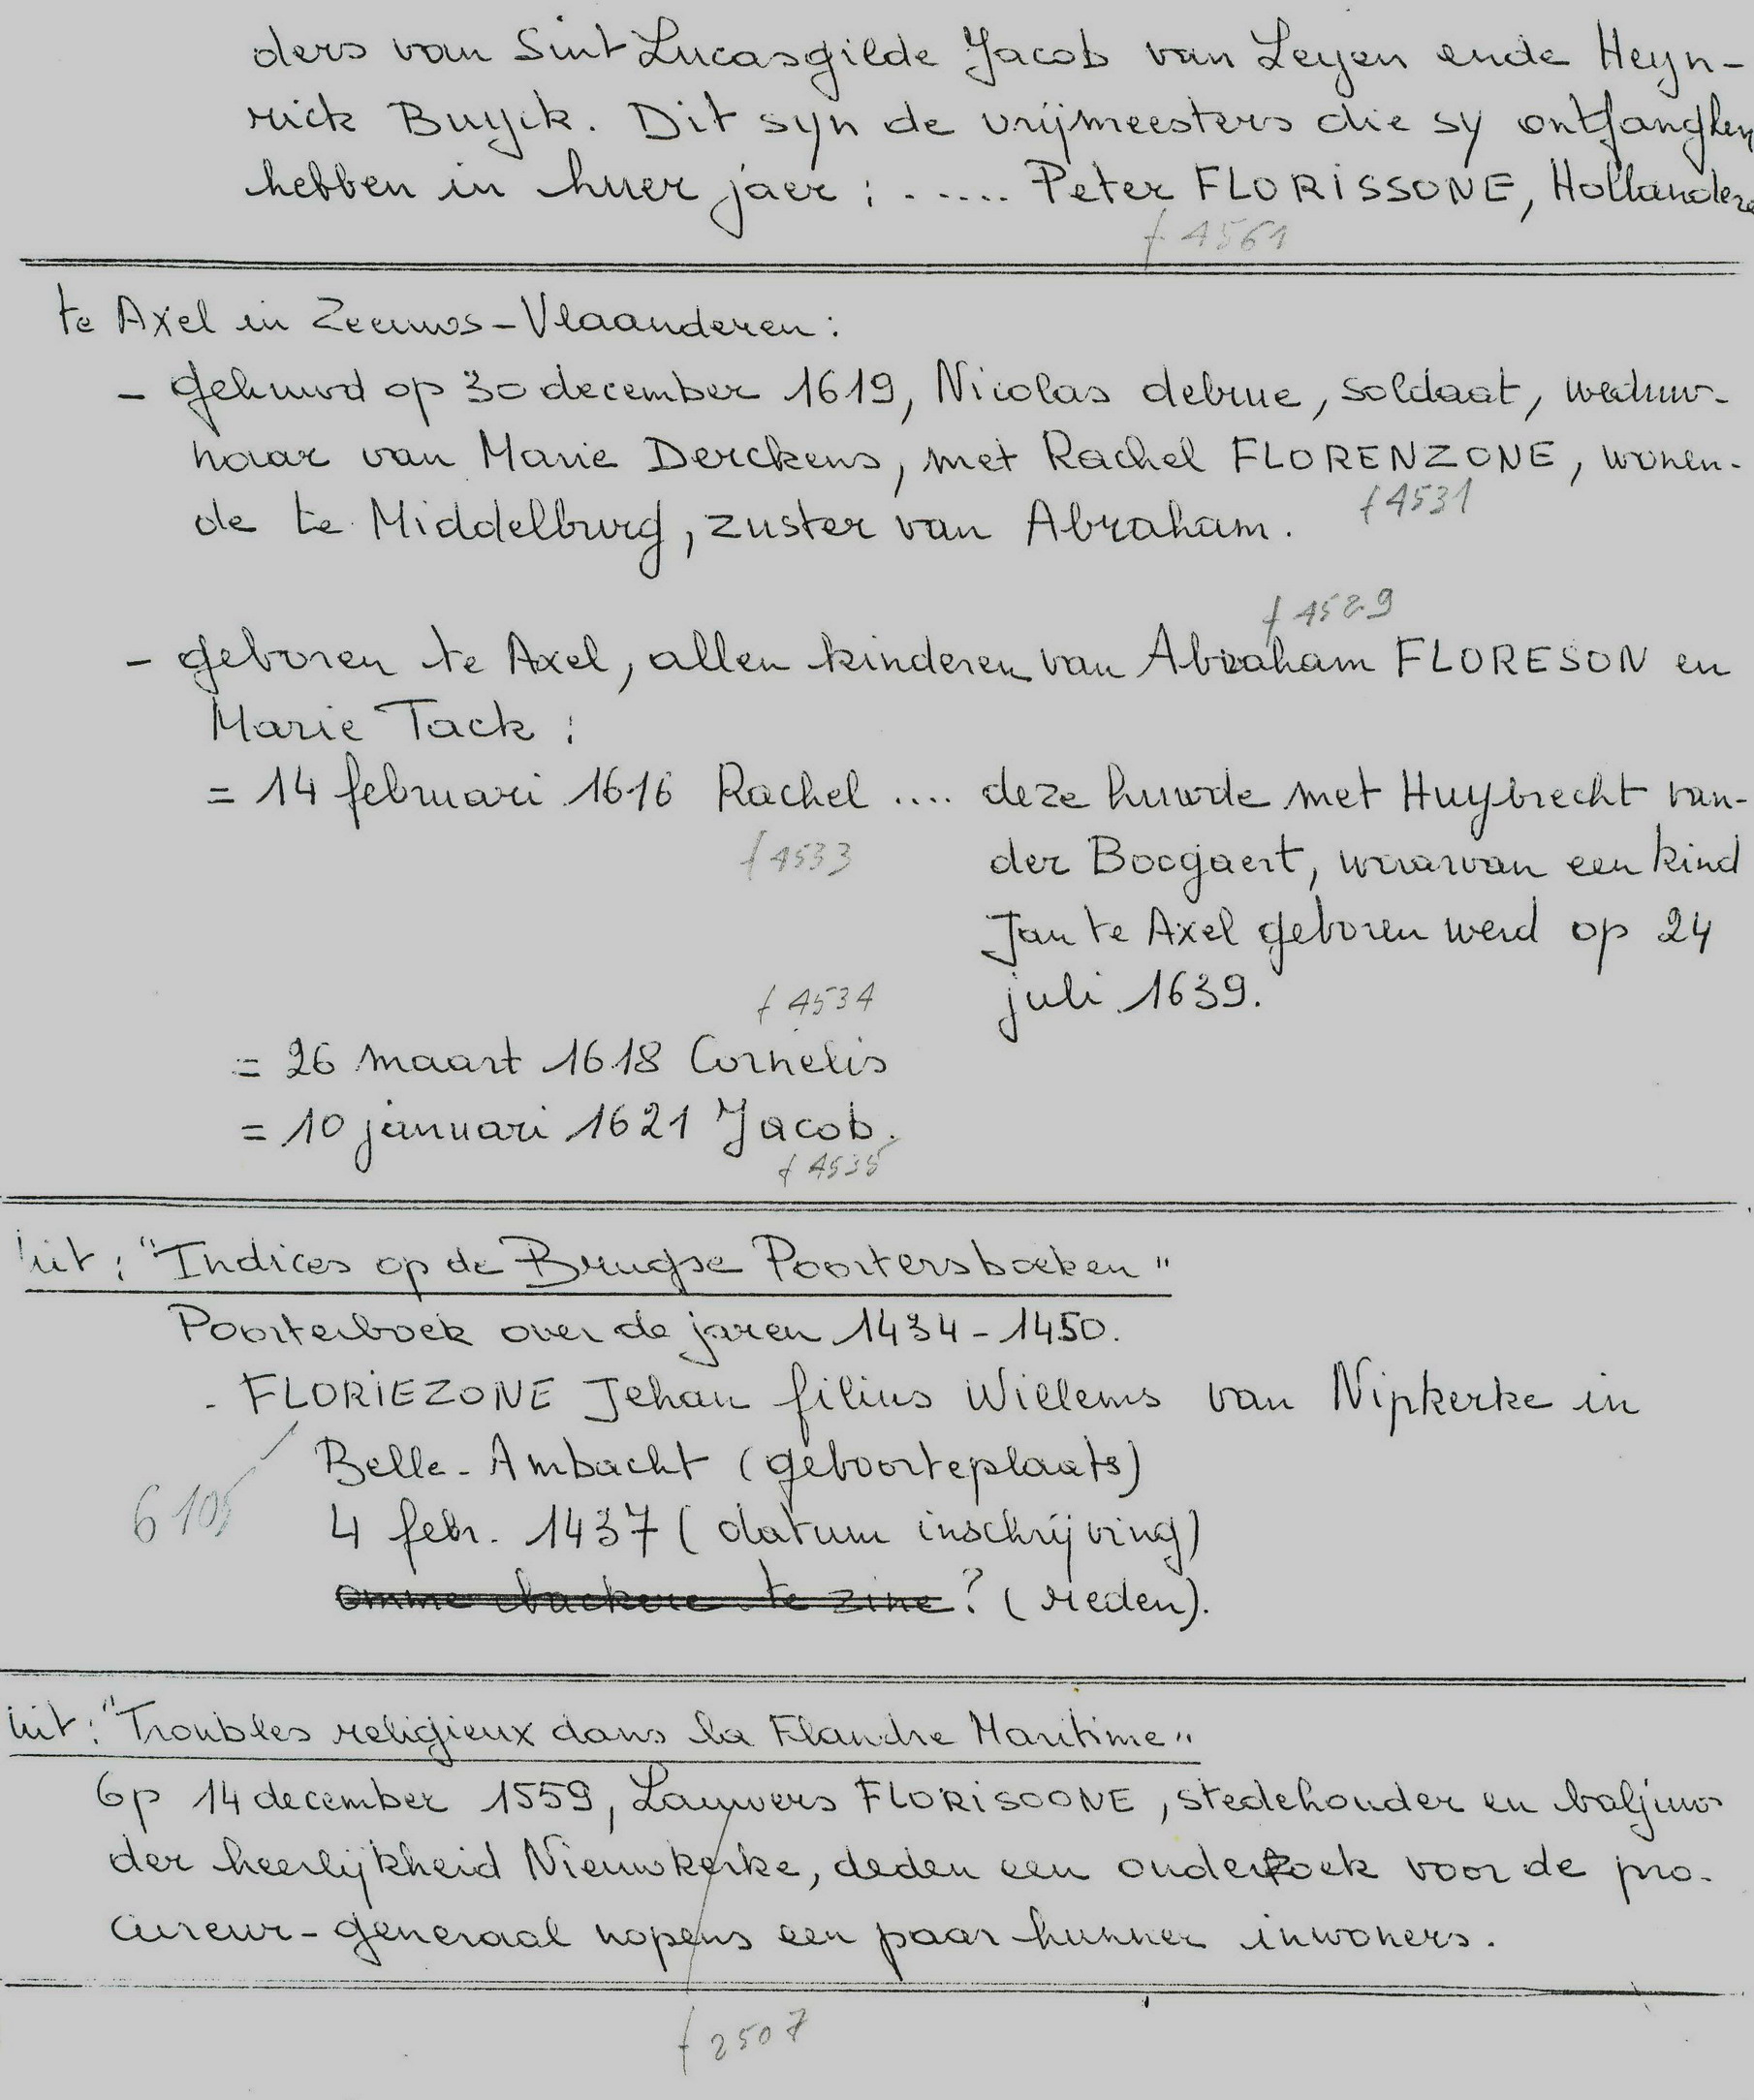 ders van Sint Lucasgilde Jacob van Leyen ende Heyn-
rick Buyck. Dit syn de vrijmeesters die sy ontfanghen
hebben in huer jaer : ..... Peter FLORISSONE, Hollandere
f 4561
te Axel in Zeeuws-Vlaanderen:
- gehuwd op 30 december 1619, Nicolas debrue, soldaat, weduw-
naar van Marie Derckens, met Rachel FLORENZONE, wonen-
f 4531
de te Middelburg, zuster van Abraham.
f 4529
- geboren te Axel, allen kinderen van Abraham FLORESON en
Marie Tack :
= 14 februari 1616 Rachel .... deze huwde met Huybrecht van-
f 4533
der Boogaert, waarvan een kind
Jan te Axel geboren werd op 24
f 4534
juli 1639.
= 26 maart 1618 Cornelis
= 10 januari 1621 Jacob.
f 4535
Uit : "Indices op de Brugse Poortersboeken"
Poorterboek over de jaren 1434-1450.
- FLORIEZONE Jehan filius Willems van Nipkerke in
Belle-Ambacht (geboorteplaats)
6105
4 febr. 1437 (datum inschrijving)
omme backere te zine ? (reden).
Uit : "Troubles religieux dans la Flandre Maritime"
Op 14 december 1559, Lauwers FLORISOONE, stedehouder en baljuw
der heerlijkheid Nieuwkerke, deden een onderzoek voor de pro-
cureur-generaal nopens een paar hunner inwoners.
f 2507